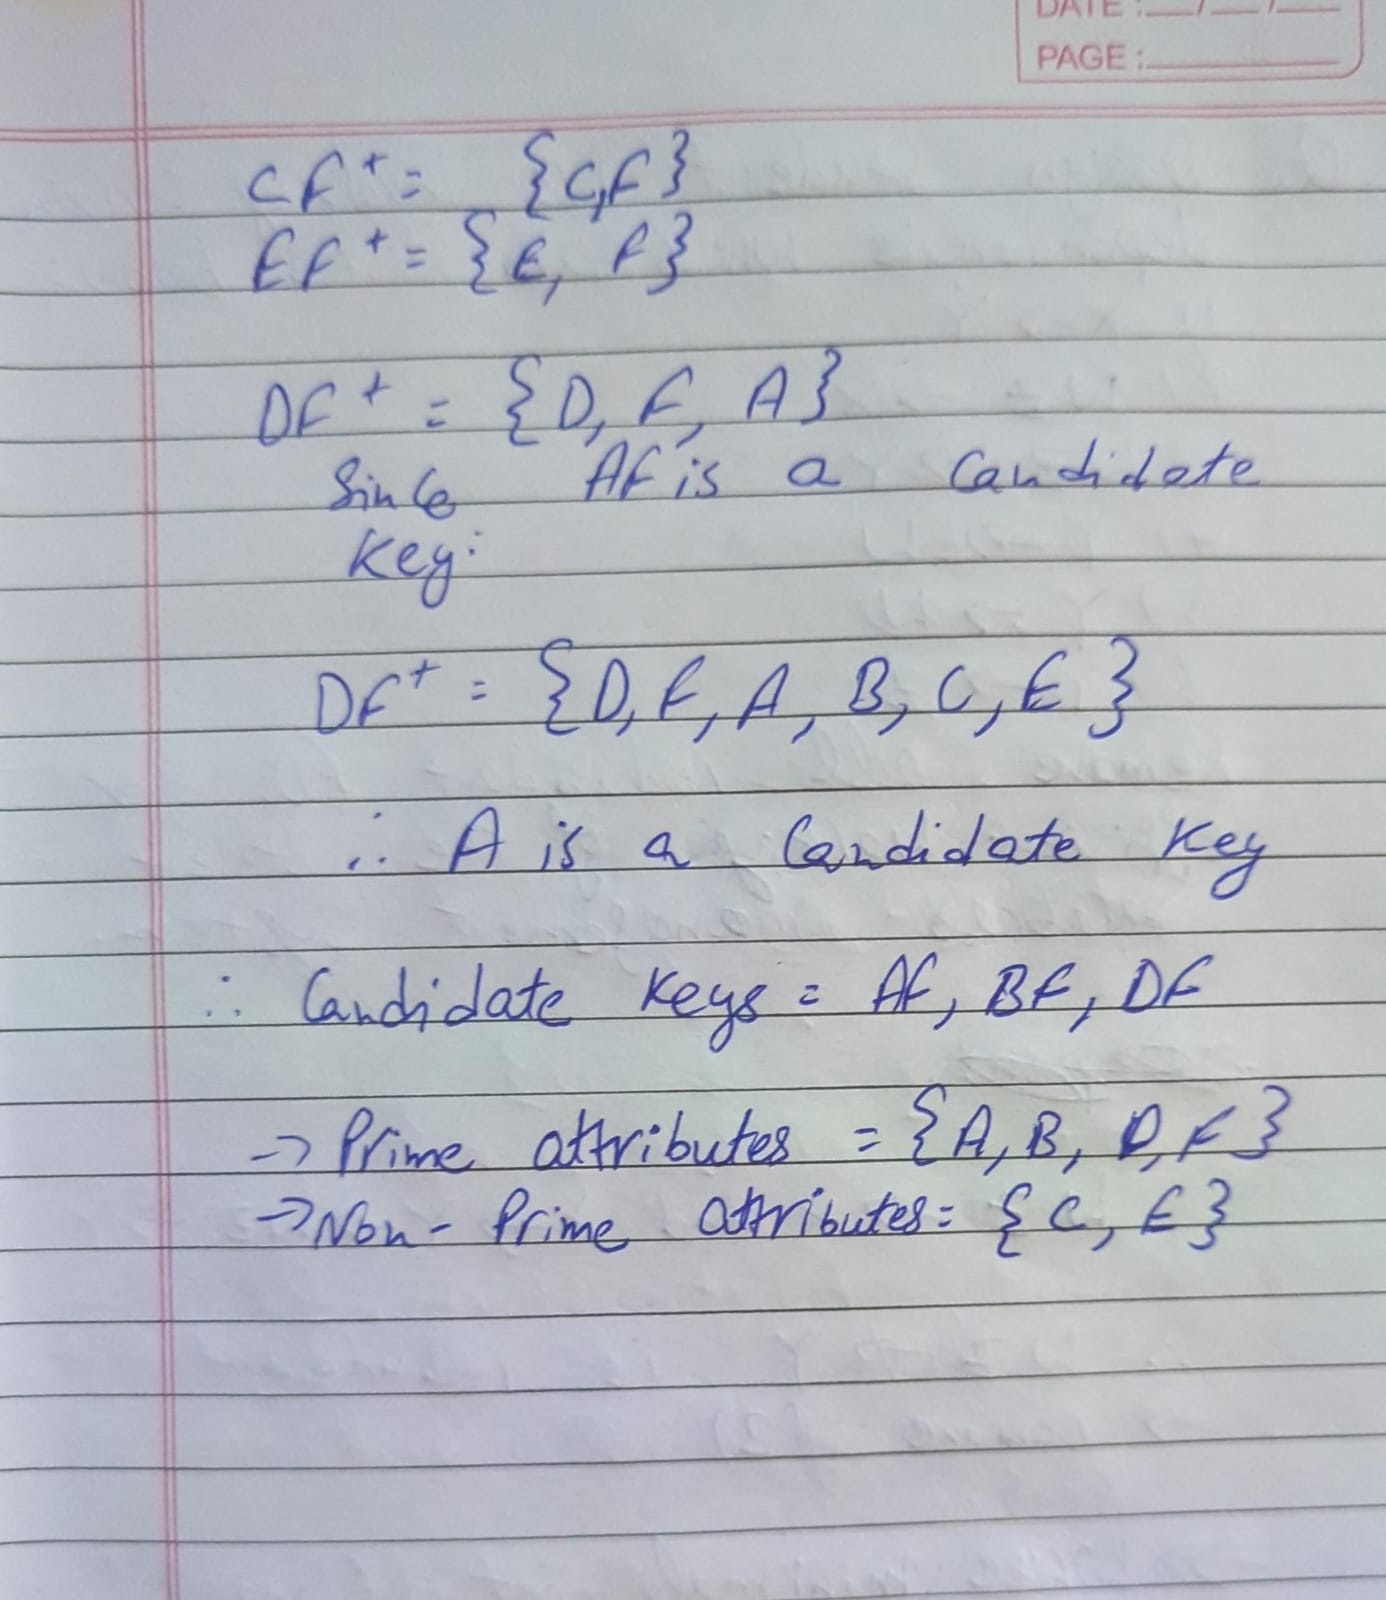 DATE : __/__/__
PAGE :
CF⁺ = {C,F}
EF⁺ = {E, F}
DF⁺ = {D, F, A}
Since AF is a Candidate
Key:
DF⁺ = {D, F, A, B, C, E}
∴ A is a Candidate Key
∴ Candidate Keys = AF, BF, DF
→ Prime attributes = {A, B, D, F}
→ Non-Prime attributes = {C, E}